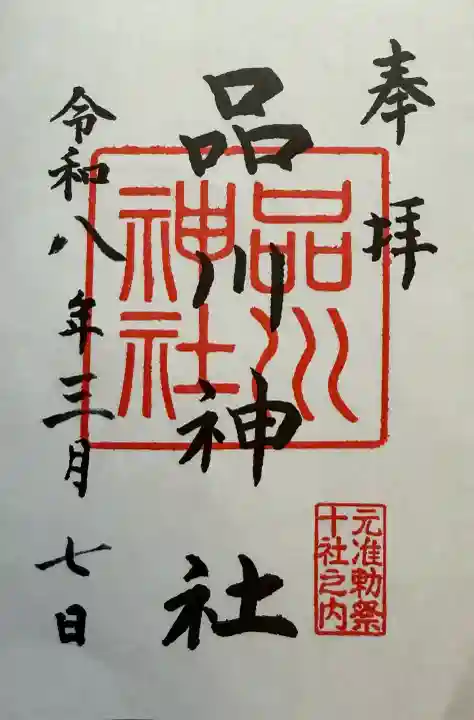 奉拝
品川神社
品川
神社
元准勅祭
十社之内
令和八年三月七日